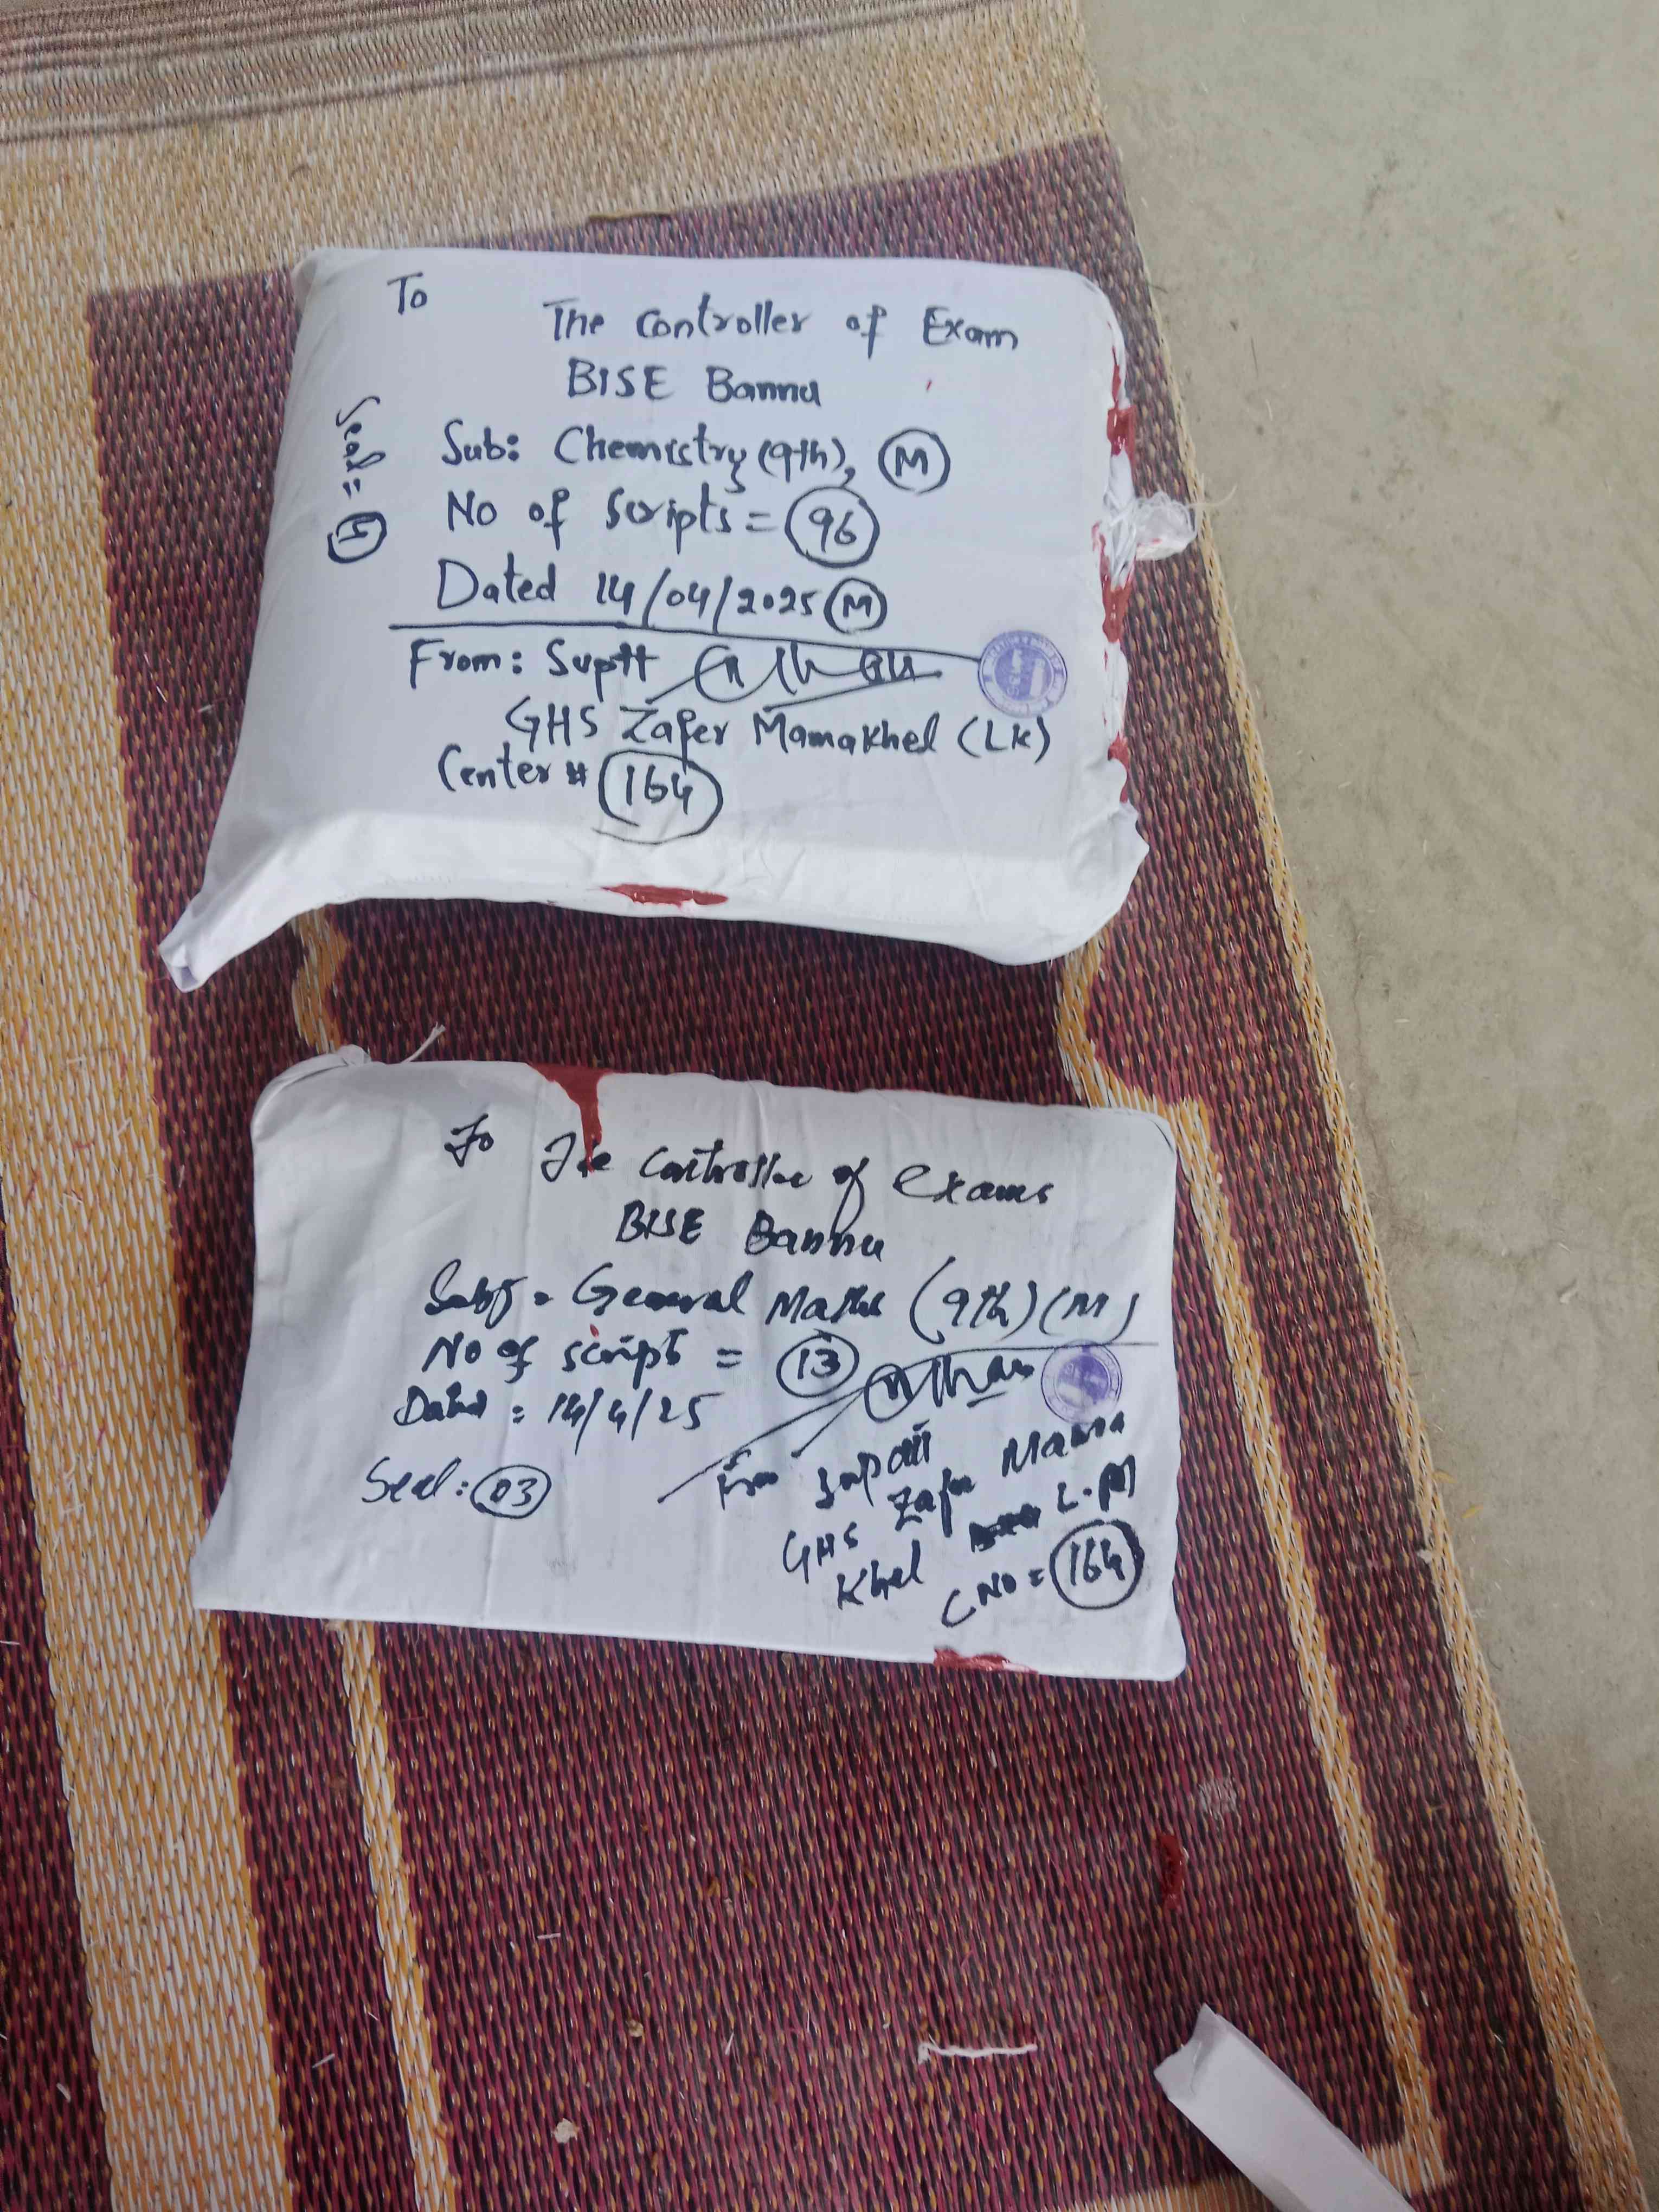 To
The Controller of Exam
BISE Bannu
Sub: Chemistry (9th), M
No of Scripts = 96
Dated 14/04/2025 M
Seal = 4
From: Suptt
GHS Zafer Mamakhel (Lk)
Center # 164
To The Controller of Exams
BISE Bannu
Subj = General Maths (9th) (M)
No of script = 13
Dated = 14/4/25
Seal: 03
From Supdtt
GHS Zafer Mama
Khel L.M
C No = 164